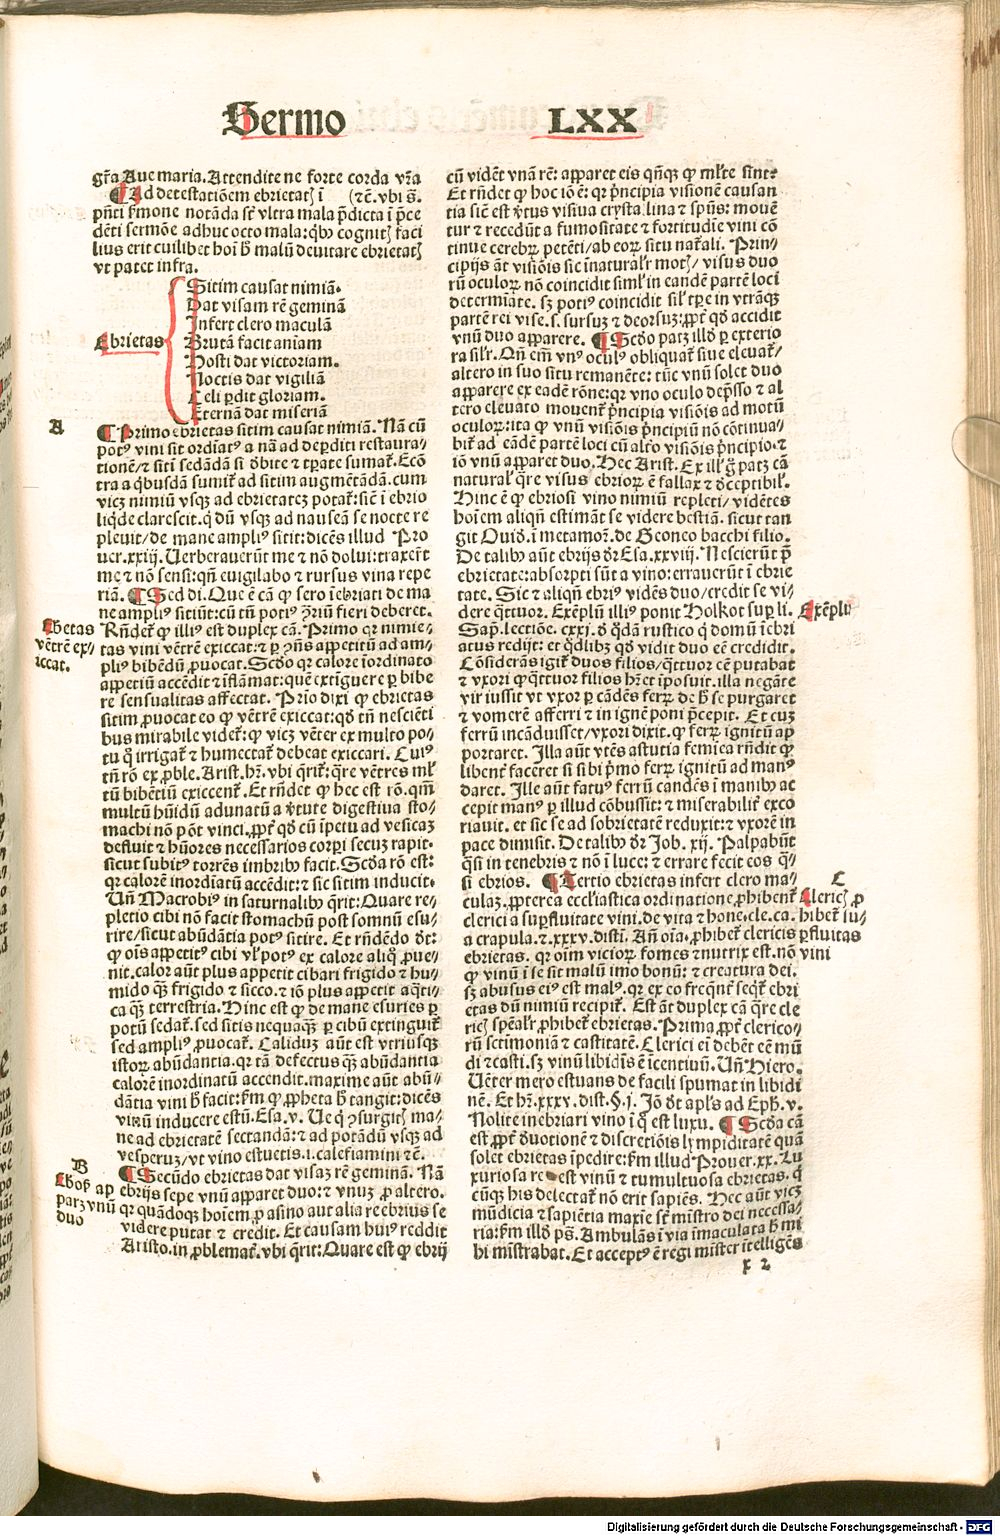 Sermo LXX
gr̄a Aue maria. Attendite ne forte corda vr̄a
¶ Ad detestatiōem ebrietatꝭ ī (⁊c̄. vbi s̄.
pn̄ti s̄mone notāda sē vltra mala p̄dicta ī p̄ce
dēti sermōe adhuc octo mala: qͥbꝰ cognitꝭ faci
lius erit cuilibet hoī ħ malū deuitare ebrietatꝭ
vt patet infra.
Ebrietas
Sitim causat nimiā.
Dat visam rē geminā
Infert clero maculā
Brutā facit aniam
Hosti dat victoriam.
Noctis dat vigiliā
Celi ꝑdit gloriam.
Eternā dat miseriā
A
¶ Primo ebrietas sitim causat nimiā. Nā cū
potꝰ vini sit ordīatꝰ a nā ad deꝑditi restaura⸗
tionē/⁊ siti sedādā si d̓bite ⁊ tꝑate sumat̄. Ecō
tra a qͥbusdām sumit̄ ad sitim augmētādā. cum
vicꝫ nimiū vsqꝫ ad ebrietatēꝫ potat̄: siē ī ebrio
liqͥde clarescit. q̇ dū vsqꝫ ad nauseā se nocte re
pleuit/de mane ampliꝰ sitit: dicēs illud Pro
uer. xxiij. Uerberauerūt me ⁊ nō dolui: traxerūt
me ⁊ nō sensi: qn̄ euigilabo ⁊ rursus vina repe
riā. ¶ Sed di. Que ē cā ꝙ sero īebriati de ma
ne ampliꝰ sitiūt: cū tn̄ potiꝰ ꝯ̄riū fieri deberet.
Ebetas
vētrē ex⸗
iccat.
Rn̄det̄ ꝙ illiꝰ est duplex cā. Primo qꝛ nimie⸗
tas vini vētrē exiccat: ⁊ ꝑ ꝯn̄s appetitū ad am⸗
pliꝰ bibēdū ꝓuocat. Scd̓o qꝛ calore īordinato
appetitū accēdit ⁊ īflāmat: quē extīguere ꝑ bibe
re sensualitas affectat. Prīo dixi ꝙ ebrietas
sitim ꝓuocat eo ꝙ vētrē exiccat: qd̓ tn̄ nesciēti
bus mirabile videt̄: ꝙ vicꝫ vēter ex multo po⸗
tu q̇ irrigat̄ ⁊ humectat̄ debeat exiccari. Cuiꝰ
tn̄ rō ex ꝓble. Arist. hr̄. vbi q̄rit̄: q̄re vētres ml̄
tū bibētiū exiccent̄. Et rn̄det ꝙ hec est rō. qm̄
multū hūidū adunatū a v̓tute digestiua sto⸗
machi nō pōt vinci. ꝓpt̄ qd̓ cū īpetu ad vesicaꝫ
defluit ⁊ hūores necessarios corꝑi secuꝫ rapit.
sicut subitꝰ torrēs imbribꝰ facit. Scd̓a rō est:
qꝛ calorē inordīatū accēdit: ⁊ sic sitim inducit.
Un̄ Macrobiꝰ in saturnalibꝰ q̄rit: Quare re⸗
pletio cibi nō facit stomachū post somnū esu⸗
rire/sicut abūdātia potꝰ sitire. Et rn̄dēdo d̓t:
ꝙ oīs appetitꝰ cibi vl̓ potꝰ ex calore aliq̇ ꝓue⸗
nit. calor aūt plus appetit cibari frigido ⁊ hu⸗
mido qꝫ̄ frigido ⁊ sicco. ⁊ iō plus appetit aq̄ti⸗
ca qꝫ̄ terrestria. Hinc est ꝙ de mane esuries ꝑ
potū sedat̄. sed sitis nequaqꝫ̄ ꝑ cibū extinguit̄
sed ampliꝰ ꝓuocat̄. Calidus aūt est vtriusqꝫ
istoꝝ abūdantia. qꝛ tā defectus qꝫ̄ abūdantia
calorē inordinatū accendit. maxime aūt abū⸗
dātia vini ħ facit: s̓m ꝙ ꝓpheta ħ tangit: dicēs
vinū inducere estū. Esa. v. Ue q̇ ꝯsurgitꝭ ma⸗
ne ad ebrietatē sectandā: ⁊ ad potādū vsqꝫ ad
vesperuꝫ/vt vino estuetis. i. calefiamini ⁊c̄.
B
Ebꝰ ap
parꝫ vnū
duo
¶ Secūdo ebrietas dat visaꝫ rē geminā. Nā
ebrijs sepe vnū apparet duo: ⁊ vnuꝫ ꝓ altero.
qꝛ quādoqꝫ hoīem ꝓ asino aut alia re ebrius se
videre putat ⁊ credit. Et causam huiꝰ reddit
Aristo. in ꝓblemat̄. vbi q̄rit: Quare est ꝙ ebrij
cū vidēt vnā rē: apparet eis qn̄qꝫ ꝙ ml̄te sint:
Et rn̄det ꝙ hoc iō ē: qꝛ p̄ncipia visionē causan
tia siē est v̓tus visiua crysta. lina ⁊ spūs: mouē
tur ⁊ recedūt a fumositate ⁊ fortitudīe vini cō
tinue cerebꝝ petēti/ab eoꝝ situ nat̄ali. Prin⸗
cipijs āt visiōis sic īnatural̓r motꝭ/visus duo
rū oculoꝝ nō coincidit siml̓ in eādē partē loci
determīate. sꝫ potiꝰ coincidit sil̓ tꝑe in vtrāqꝫ
partē rei vise. s. sursuꝫ ⁊ deorsuꝫ: ꝓpt̄ qd̓ accidit
vnū duo apparere. ¶ Scd̓o patꝫ illd̓ ꝑ exterio
ra sil̓r. Qn̄ em̄ vnꝰ oculꝰ obliquat̄ siue eleuat̄/
altero in suo situ remanēte: tūc vnū solet duo
apparere ex eadē rōne: qꝛ vno oculo dep̄sso ⁊ al
tero eleuato mouent̄ p̄ncipia visiōis ad motū
oculoꝝ: ita ꝙ vnū visiōis p̄ncipiū nō cōtinua⸗
bit̄ ad eādē partē loci cū alt̓o visiōis p̄ncipio. ⁊
iō vnū apparet duo. Hec Arist. Ex ill̓ g̊ patꝫ cā
natural̓ q̄re visus ebrioꝝ ē fallax ⁊ d̓ceptibil̓.
Hinc ē ꝙ ebriosi vino nimiū repleti/vidētes
hoīem aliqn̄ estimāt se videre bestiā. sicut tan
git Ouid̓. ī metamor. de Geonco bacchi filio.
De talibꝰ aūt ebrijs d̓r Esa. xxviij. Nescierūt p̄
ebrietate: absorpti sūt a vino: errauerūt ī ebrie
tate. Sic ⁊ aliqn̄ ebriꝰ vidēs duo/credit se vi⸗
dere q̄ttuor. Exēplū illiꝰ ponit Holkot suꝑ li.
Exēplū
Sap̄. lectiōe. cxxj. d̓ q̇dā rustico q̇ domū īebri
atus redijt: et q̇dlibꝫ qd̓ vidit duo eē credidit.
Cōsiderās igit̄ duos filios/q̄ttuor cē putabat
⁊ vxori ꝙ q̄ttuor filios hr̄et īposuit. illa negāte
vir iussit vt vxor ꝑ cādēs ferꝝ de ħ se purgaret
⁊ vomerē afferri ⁊ in ignē poni p̄cepit. Et cuꝫ
ferrū incāduisset/vxori dixit. ꝙ ferꝝ ignitū ap
portaret. Illa aūt vtēs astutia femīea rn̄dit ꝙ
libent̄ faceret si sibi p̄mo ferꝝ ignitū ad manꝰ
daret. Ille aūt fatuꝰ ferrū candēs ī manibꝰ ac
cepit manꝰ ꝑ illud cōbussit: ⁊ miserabilit̄ exco
riauit. et sic se ad sobrietatē reduxit: ⁊ vxorē in
pace dimisit. De talibꝰ d̓r Job. xij. Palpabūt
q̄si in tenebris ⁊ nō ī luce: ⁊ errare fecit eos q̄⸗
si ebrios. ¶ Tertio ebrietas infert clero ma⸗
C
Clericꝭ ꝓ
hibet̄ su⸗
ꝑfluitas
vini
culaꝫ. ꝓpterea eccl̓iastica ordinatione ꝓhibent̄
clerici a suꝑfluitate vini. de vita ⁊ hone. cle. ca.
a crapula. ⁊. xxxv. disti. An̄ oīa. ꝓhibet̄ clericis
ebrietas. qꝛ oīm vicioꝝ fomes ⁊ nutrix est. nō
ꝙ vinū ī se sit malū imo bonū: ⁊ creatura dei.
sꝫ abusus eiꝰ est malꝰ. qꝛ ex eo freqn̄t̄ seqt̄ ebri
etas dū nimiū recipit̄. Est āt duplex cā q̄re cle
ricꝭ speāl̓r ꝓhibet̄ ebrietas. Prima ꝓpt̄ clerico⸗
rū sctīmoniā ⁊ castitatē. Clerici ei debēt eē mū
di ⁊ casti. sꝫ vinū libidīs ē īcentiuū. Un̄ Hiero.
Uēter mero estuans de facili spumat in libidi
nē. Et hr̄. xxxv. dist. §. j. Iō d̓t apl̓s ad Eph̓. v.
Nolite inebriari vino ī q̇ est luxu. ¶ Scd̓a cā
est ꝓpt̄ d̓uotionē ⁊ discretiōis lympiditatē quā
solet ebrietas īpedire: s̓m illud Prouer. xx. Lu
xuriosa res est vinū ⁊ tumultuosa ebrietas. q̇
cūqꝫ his delectat̄ nō erit sapiēs. Hec aūt vicꝫ
mūdicia ⁊ sapiētia maxīe st̄ mīstro dei necessa⸗
ria: s̓m illd̓ ps̄. Ambulās ī via īmaculata ħ mi
hi mīstrabat. Et acceptꝰ ē regi mīster ītelligēs
x 2
Digitalisierung gefördert durch die Deutsche Forschungsgemeinschaft - DFG